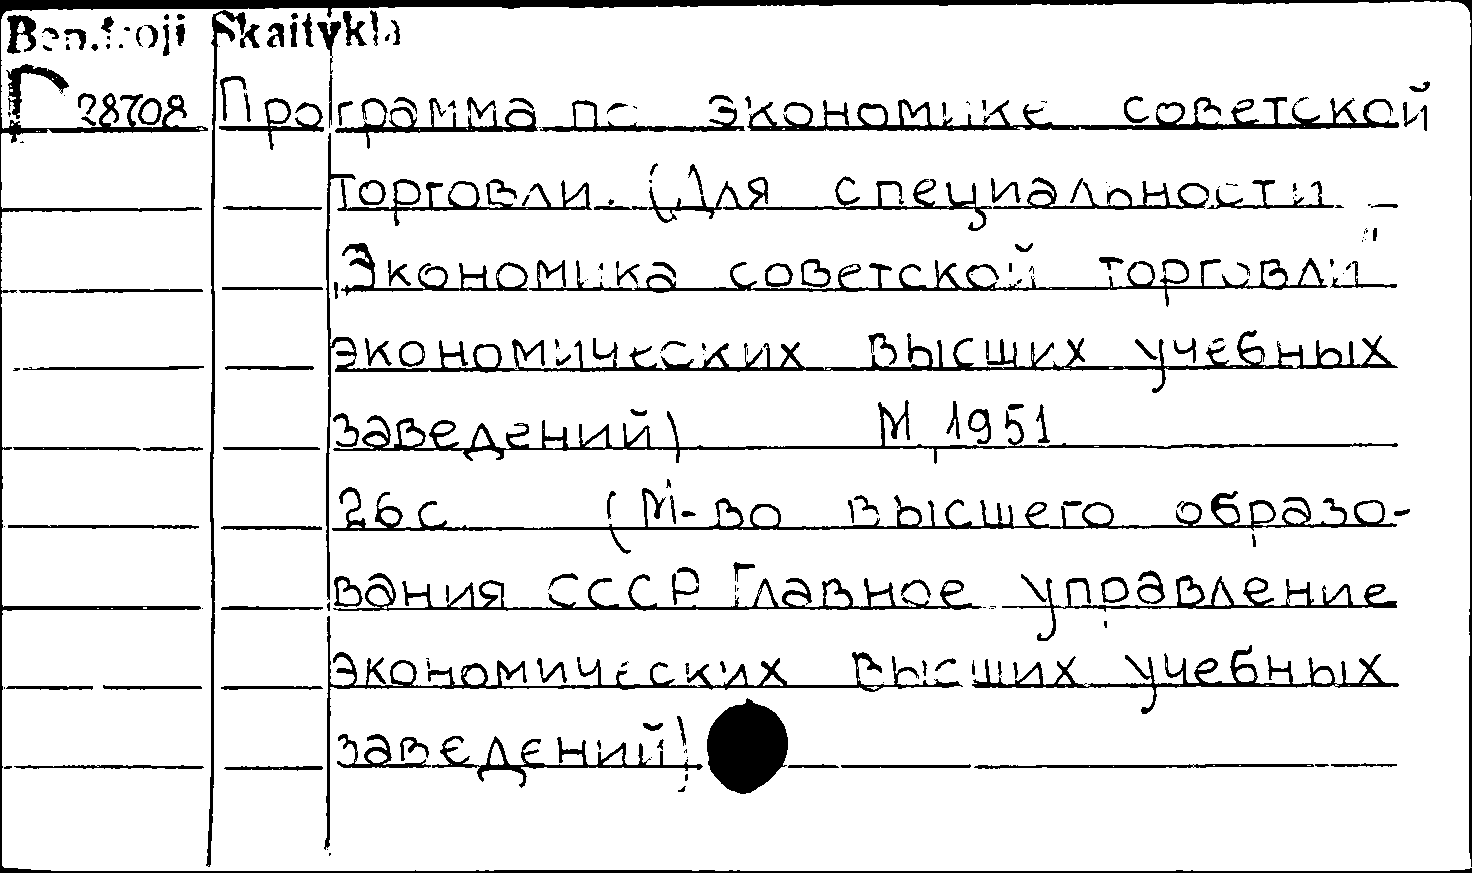 Bendroji Skaitykla
28708 Программа по экономике советской
торговли. (Для специальности
„Экономика советской торговли"
экономических высших учебных
заведений) М, 1951
26с (М-во высшего образо-
вания СССР Главное управление
экономических высших учебных
заведений)